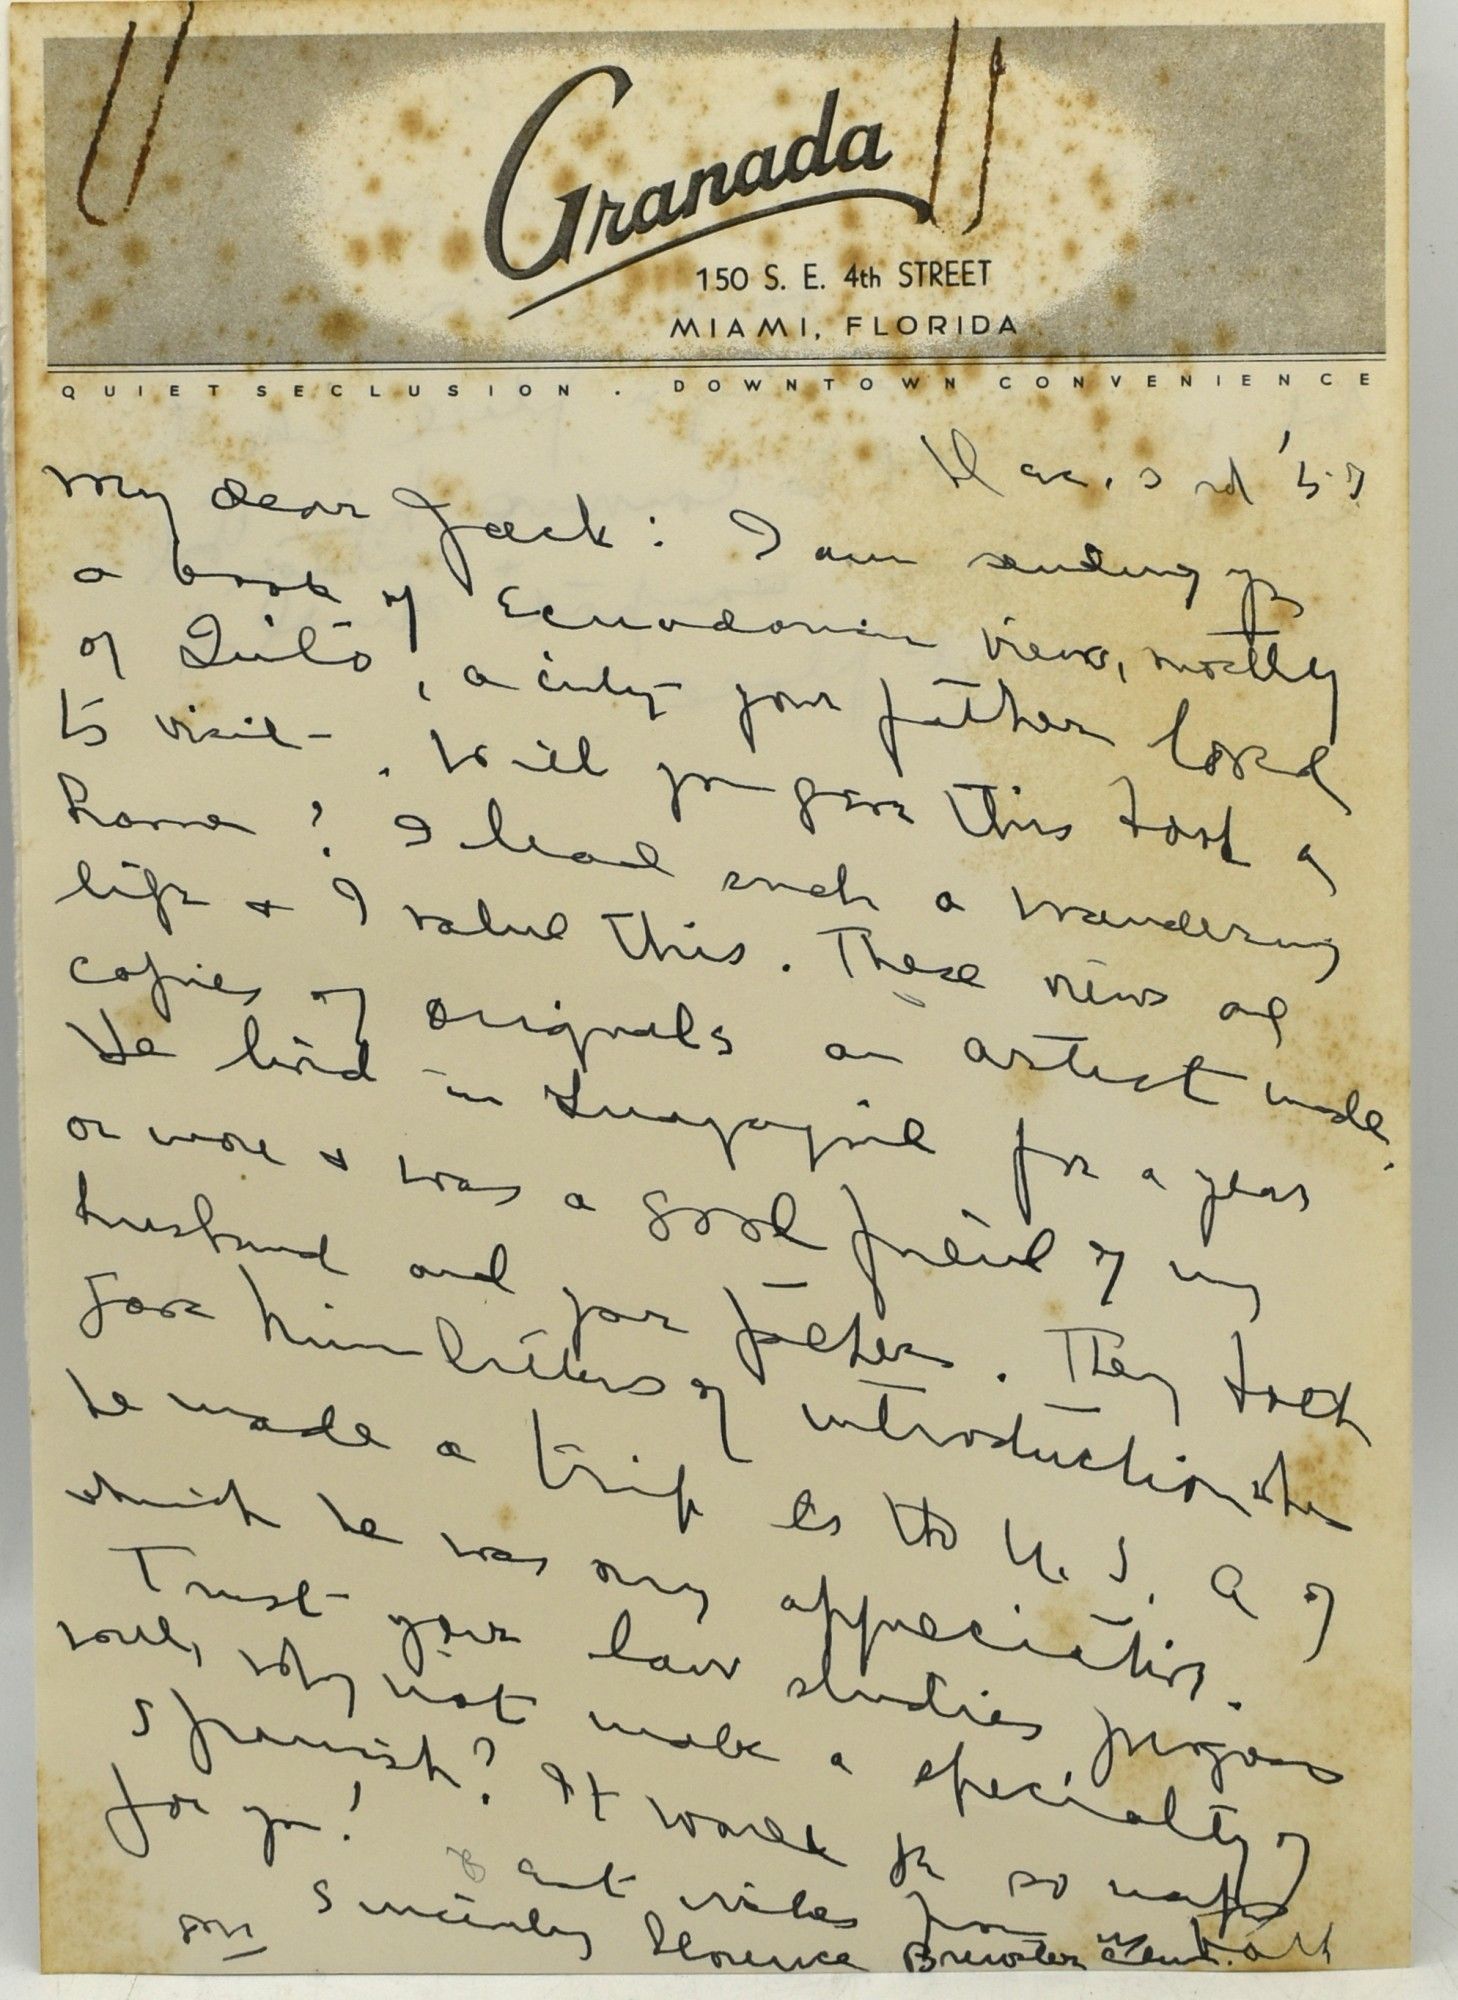 Granada
150 S. E. 4th STREET
MIAMI, FLORIDA
QUIET SECLUSION . DOWNTOWN CONVENIENCE
3rd '57
My dear Jack : I am sending you
a book of Ecuadorian views, mostly
of Quito, a city your father loved
to visit. Will you give this book a
home? I lead such a wandering
life & I value this. These views are
copies of originals an artist made.
He lived in Guayaquil for a year
or more & was a good friend of my
husband and your father. They both
gave him letters of introduction when
he made a trip to the U. S. A of
which he was very appreciative.
Trust your law studies progress
well, why not make a specialty of
Spanish? It would be so
for you!
Best wishes from
Sincerely Florence Brewster